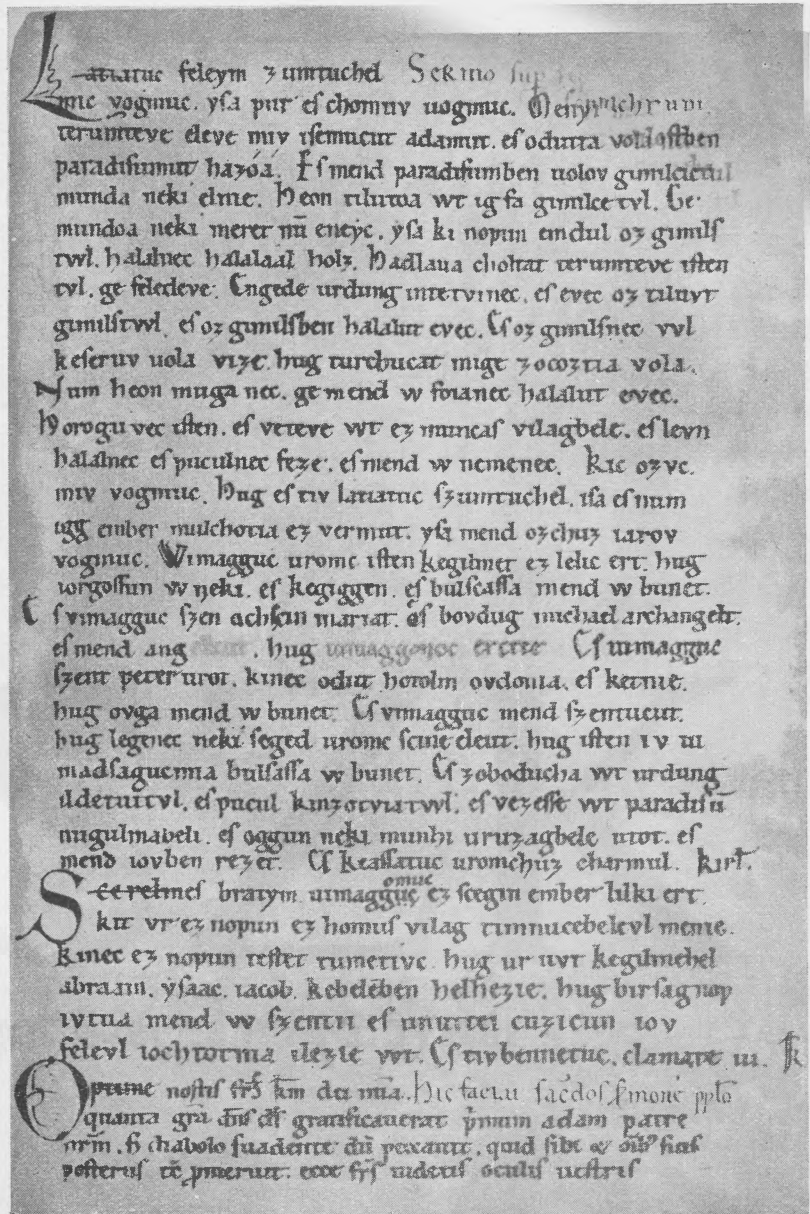 Latiatuc feleym zumtuchel Sermo sup
mic vogmuc. yſa pur eſ chomuv uogmuc.
terumteve eleve miv iſemucut adamut. eſ odutta vola
paradiſumut hazóá. Eſ mend paradiſumben uolov gimilcictul
munda neki elnie. Heon tilutoa wt ig fa gimilce tvl. Ge
mundoa neki meret nū eneyc. yſa ki nopun emdul oz gimilſ
twl. halalnec halalaal holz. Hadlaua choltat terumteve iſten
tvl. ge feledeve. Engede urdung intetvinec. eſ evec oz tiluvt
gimilſtwl. eſ oz gimilſben halalut evec. Eſ oz gimilſnec vvl
keſeruv uola vize. hug turchucat mige zocoztia vola.
Num heon muga nec. ge mend w foianec halalut evec.
Horogu vec iſten. eſ veteve wt ez muncaſ vilagbele. eſ levn
halalnec eſ puculnec feze. eſ mend w nemenec. Kic ozvc.
miv vogmuc. Hug eſ tiv latiatuv ſzumtuchel. iſa eſ num
igg ember mulchotia ez vermut. yſa mend ozchuz iarov
vogmuc. Wimagguc uromc iſten kegilmet ez lelic ert. hug
iorgoſſun w neki. eſ kegiggen. eſ bulſcaſſa mend w bunet.
Eſ vimagguc ſzen achſcin mariat. eſ bovdug michael archangelt.
eſ mend ang . hug uimaggonoc erette Eſ uimagguc
ſzent peter urot. kinec odut hotolm ovdonia. eſ ketnie.
hug ovga mend w bunet. Eſ vimagguc mend ſzentucut.
hug legenec neki ſeged uromc ſcine eleut. hug iſten iv ui
madſaguc mia bulſaſſa w bunet. Eſ zoboducha wt urdung
ildetuitvl. eſ pucul kinzotviatwl. eſ vezeſſe wt paradiſū
nugulmabeli. eſ oggun neki munhi uruzagbele utot. eſ
mend iovben rezet. Eſ keaſſatuc uromchuz charmul. kirł.
Scerelmeſ bratym uimagguc omuc ez ſcegin ember lilki ert.
kit vr ez nopun ez homuſ vilag timnucebelevl mente.
kinec ez nopun teſtet tumetivc. hug ur uvt kegilmehel
abraam. yſaac. iacob. kebelēben helhezie. hug birſagnop
ivtva mend w ſzentii eſ unuttei cuzicun iov
felevl iochtotnia ilezie wt. Eſ tiv bennetuc. clamate iii. k
Optime noſtis Hic
quanta adam patrē
diabolo ſuadente quid ſibi
posteris ecce oculiſ ueſtriſ